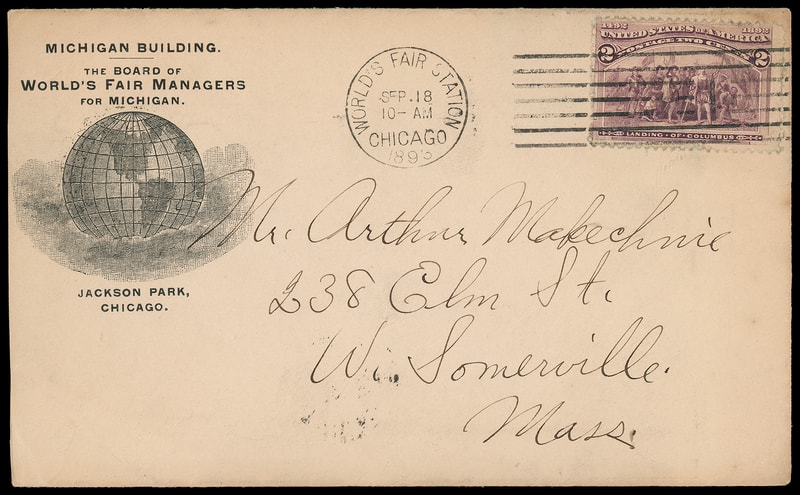 MICHIGAN BUILDING.
THE BOARD OF
WORLD'S FAIR MANAGERS
FOR MICHIGAN.
JACKSON PARK,
CHICAGO.
WORLD'S FAIR STATION
SEP. 18
10-AM
CHICAGO
1893
1492 1892
UNITED STATES OF AMERICA
2 POSTAGE TWO CENTS 2
LANDING · OF · COLUMBUS
Mr. Arthur Makechnie
238 Elm St.
W. Somerville.
Mass.